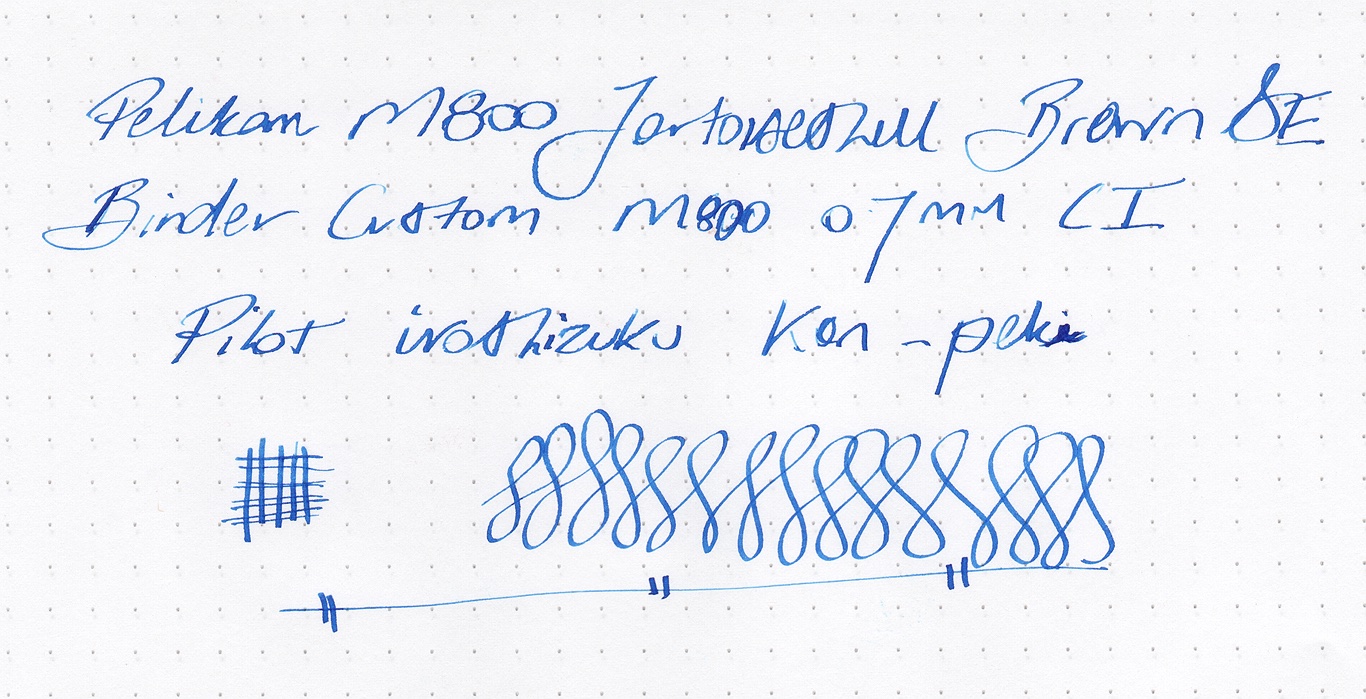 Pelikan M800 Tortoiseshell Brown SE
Binder Custom M800 0.7mm CI
Pilot iroshizuku Kon-peki